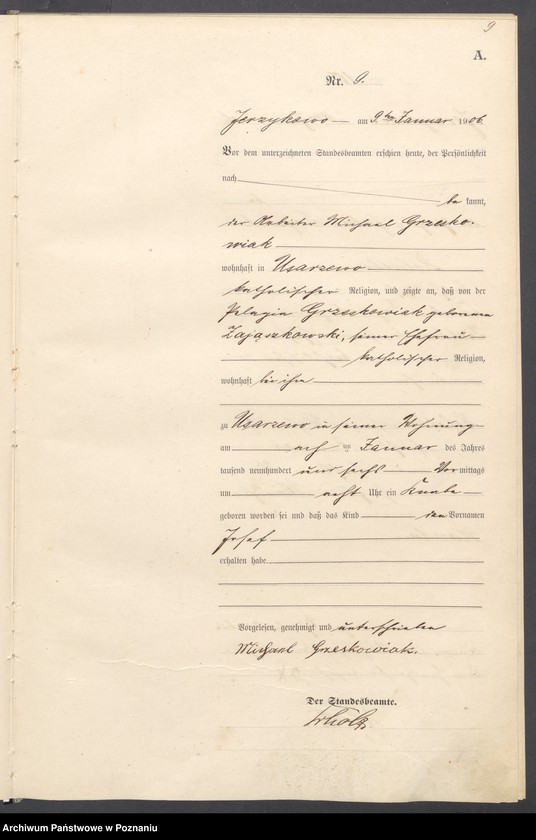 9
A.
Nr. 9.
Jerzykowo — am 9ten Januar 1906
Vor dem unterzeichneten Standesbeamten erschien heute, der Persönlichkeit
nach
be kannt,
der Arbeiter Michael Grzesko-
wiak
wohnhaft in Usarzewo
katholischer Religion, und zeigte an, daß von der
Pelagia Grzeskowiak geborenen
Zajaszkowski, seiner Ehefrau
katholischer Religion,
wohnhaft bei ihm
zu Usarzewo in seiner Wohnung
am acht ten Januar des Jahres
tausend neunhundert und sechs Vor mittags
um acht Uhr ein Knabe
geboren worden sei und daß das Kind den Vornamen
Josef
erhalten habe.
Vorgelesen, genehmigt und unterschrieben
Michael Grzeskowiak.
Der Standesbeamte.
Archiwum Państwowe w Poznaniu